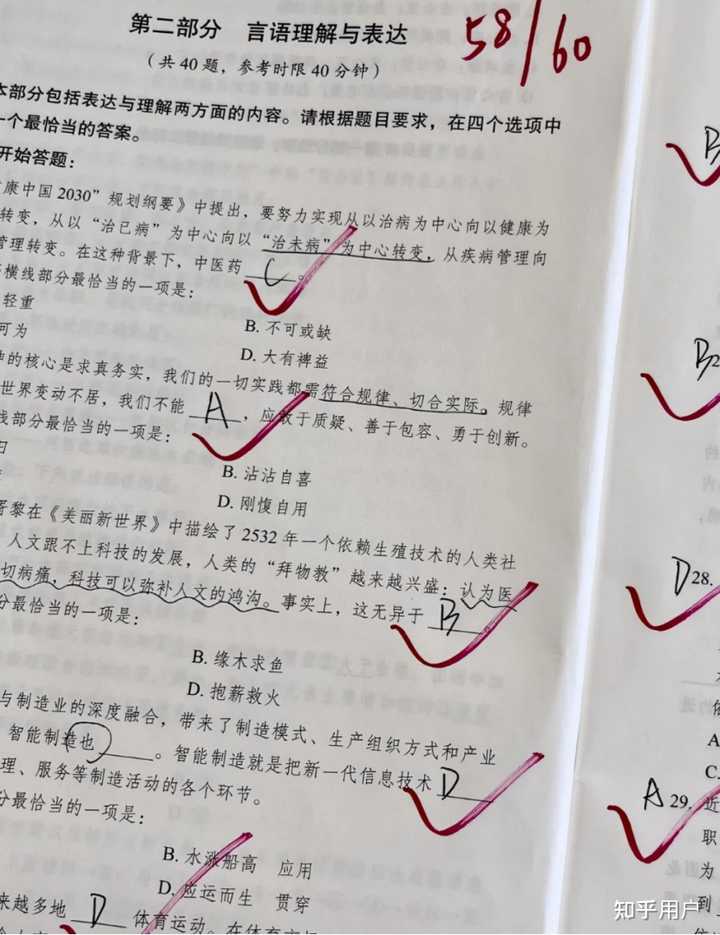 第二部分 言语理解与表达
58/60
(共40题，参考时限40分钟)
本部分包括表达与理解两方面的内容。请根据题目要求，在四个选项中
一个最恰当的答案。
开始答题：
康中国2030”规划纲要》中提出，要努力实现从以治病为中心向以健康为
转变，从以“治已病”为中心向以“治未病”为中心转变，从疾病管理向
管理转变。在这种背景下，中医药 C 。
横线部分最恰当的一项是：
轻重
B. 不可或缺
可为
D. 大有裨益
的核心是求真务实，我们的一切实践都需符合规律、切合实际。规律
世界变动不居，我们不能 A ，应敢于质疑、善于包容、勇于创新。
线部分最恰当的一项是：
B. 沾沾自喜
D. 刚愎自用
胥黎在《美丽新世界》中描绘了2532年一个依赖生殖技术的人类社
人文跟不上科技的发展，人类的“拜物教”越来越兴盛：认为医
切病痛，科技可以弥补人文的鸿沟。事实上，这无异于 B
分最恰当的一项是：
B. 缘木求鱼
D. 抱薪救火
与制造业的深度融合，带来了制造模式、生产组织方式和产业
智能制造也 。智能制造就是把新一代信息技术 D
理、服务等制造活动的各个环节。
分最恰当的一项是：
B. 水涨船高 应用
D. 应运而生 贯穿
来越多地 D 体育运动。在体育
B
B
D 28.
A
C.
A 29. 近
职
为
到
知乎用户